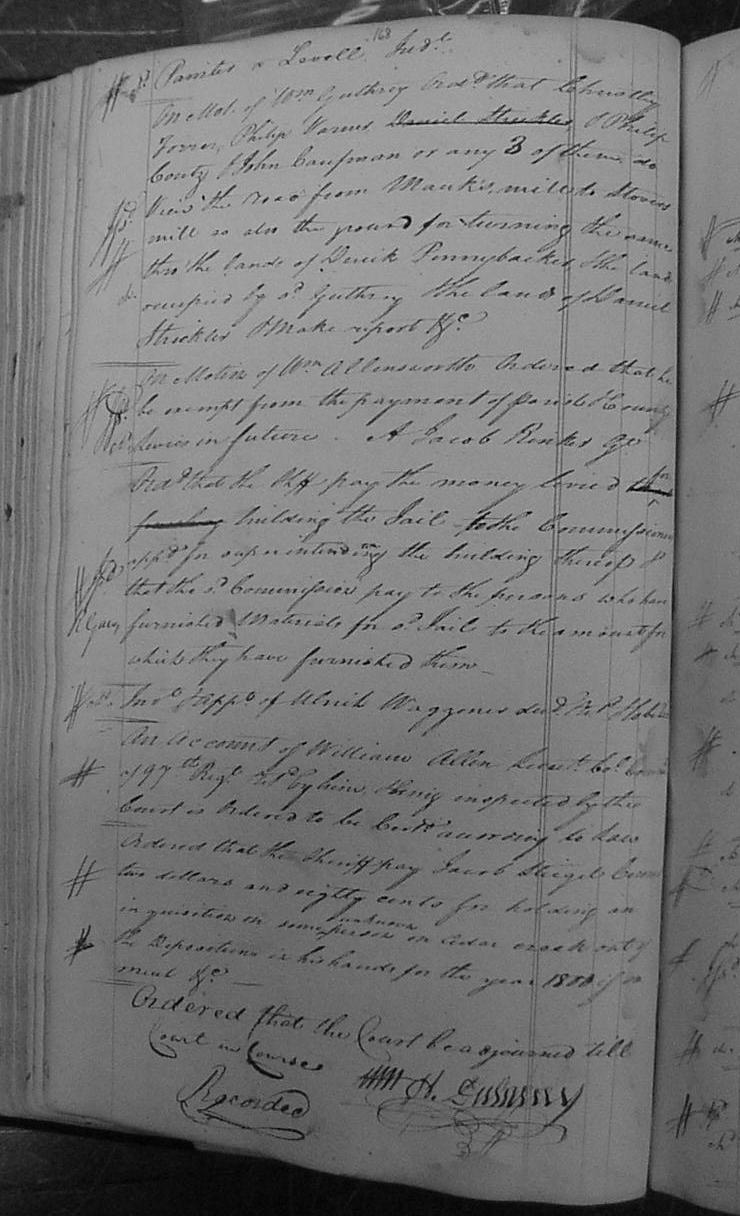 168
Painter v Lovell Judgt.
On Mot. of Wm Guthry Ordd that Christly
Forrer, Philip Varner, Daniel Strickler & Philip
Coutz & John Caufman or any 3 of them do
View the road from Mauk's mill to Stovers
mill so also the ground for turning the same
thro the lands of Derick Pennybacker & the land
occupied by sd Guthry & the lands of Daniel
Strickler & Make report &c
On Motion of Wm Allensworth Ordered that he
be exempt from the payment of parish & County
levies in future. A Jacob Rinker Gt.
Ordd that the Shff pay the money levied for
building the Jail to the Commissioners
appd for superintending the building thereof &
that the sd Commissioners pay to the persons who have
furnished Materials for sd Jail to the amount for
which they have furnished them
Invy & Appt of Ulrich Waggoner decd
An Account of William Allen Lieut. Col.
of 97th Regt by him being inspected by the
Court is Ordered to be Certd according to Law
Ordered that the Sheriff pay Jacob Steigel
two dollars and eighty cents for holding an
inquisition on some unknown person on Cedar creek out of
the Depositum in his hands for the year 1800 if
&c
Ordered that the Court be adjourned till
Court in Course
Wm H. Dulaney
Recorded